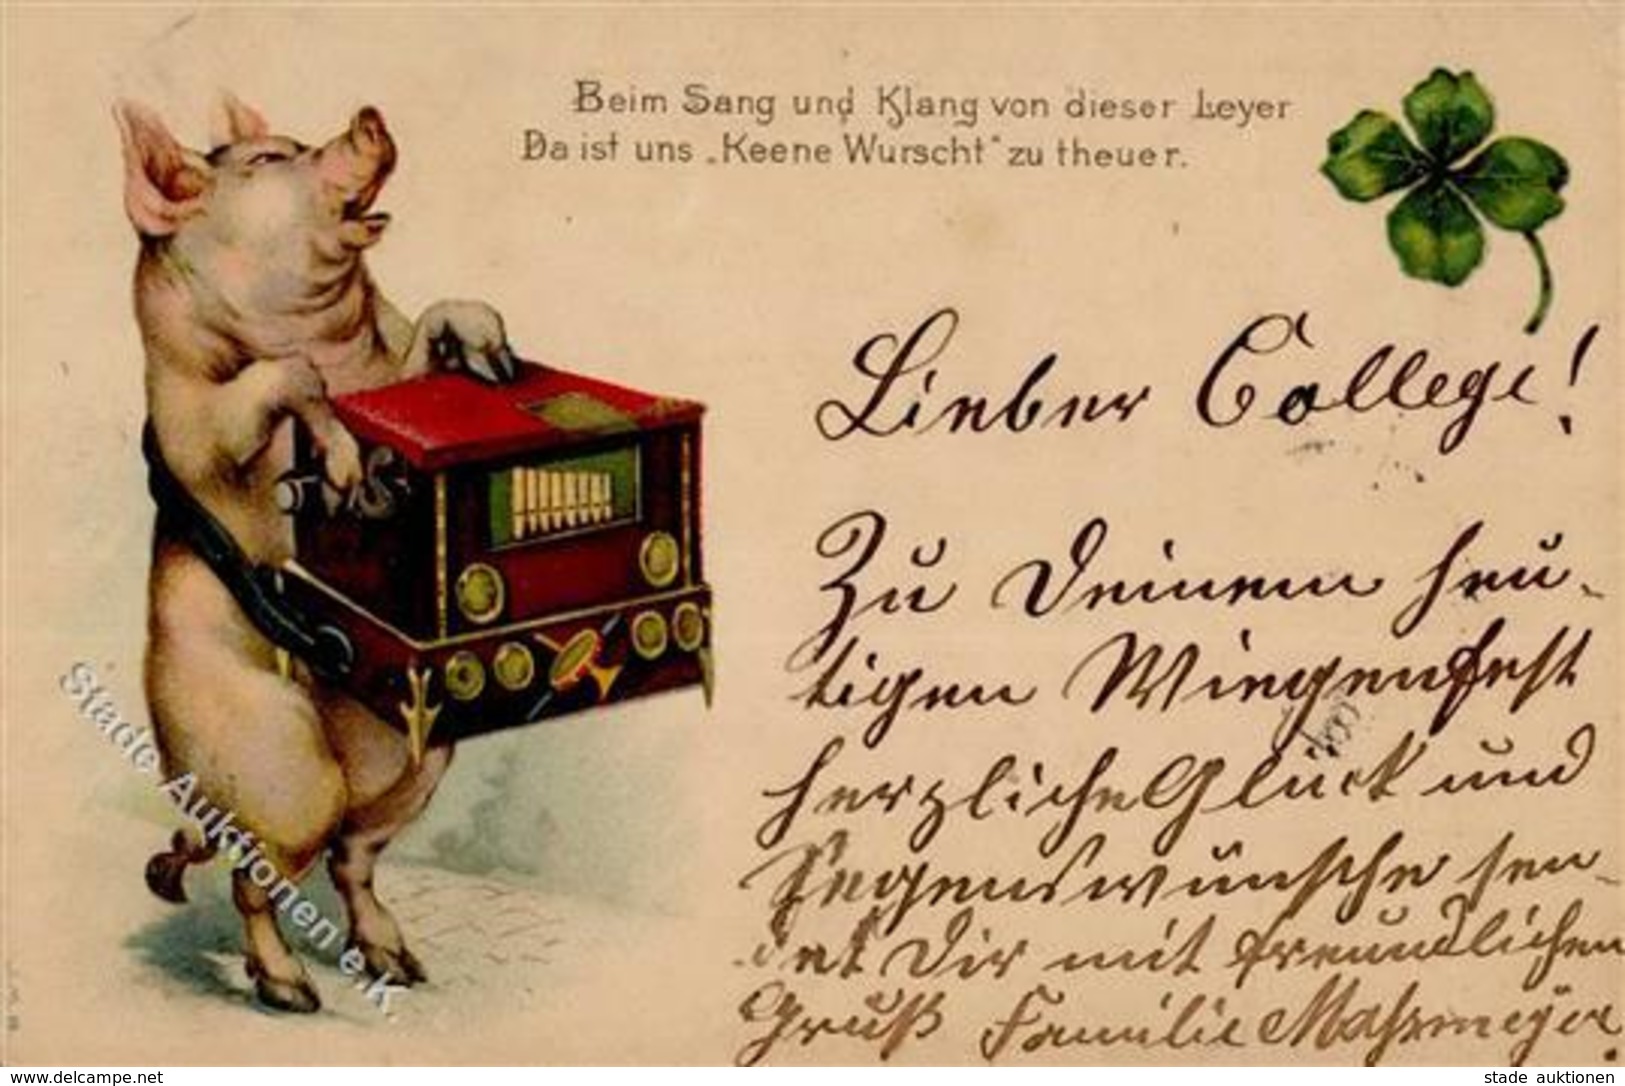 Beim Sang und Klang von dieser Leyer
Da ist uns „Keene Wurscht“ zu theuer.
Lieber College!
Zu Deinem heu-
tigen Wiegenfest
herzliche Glück und
Segenswünsche sen-
det Dir mit freundlichen
Gruß Familie
Stade Auktionen e.K.
www.delcampe.net
stade auktionen